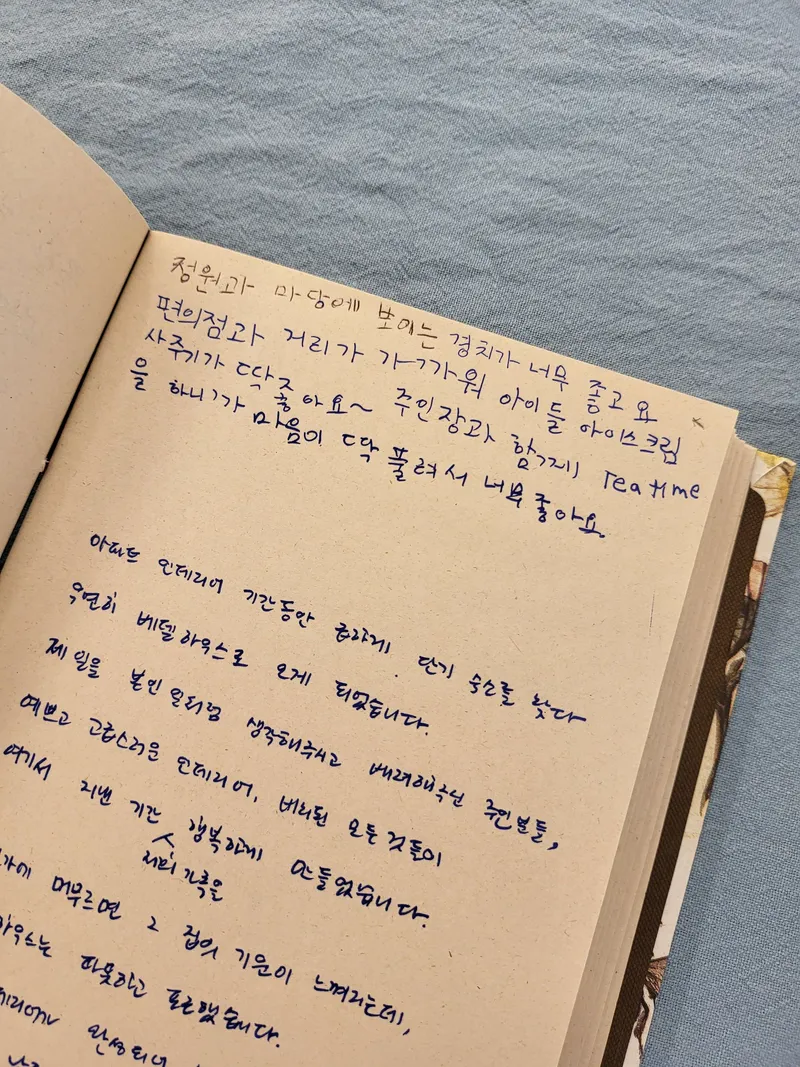 정원과 마당에 보이는 경치가 너무 좋고요
편의점과 거리가 가까워 아이들 아이스크림
사주기가 딱 좋아요~ 주인장과 함께 Tea time
을 하니까 마음이 딱 풀려서 너무 좋아요.
아파트 인테리어 기간동안 급하게 단기 숙소를 찾다
우연히 베델하우스로 오게 되었습니다.
제 일을 본인 일처럼 생각해주시고 배려해주신 주인분들,
예쁘고 고급스러운 인테리어, 배려된 모든 것들이
여기서 지낸 기간 행복하게 만들었습니다.
저희 가족을
머무르면 그 집의 기운이 느껴지는데,
따뜻하고 포근했습니다.
완성되어